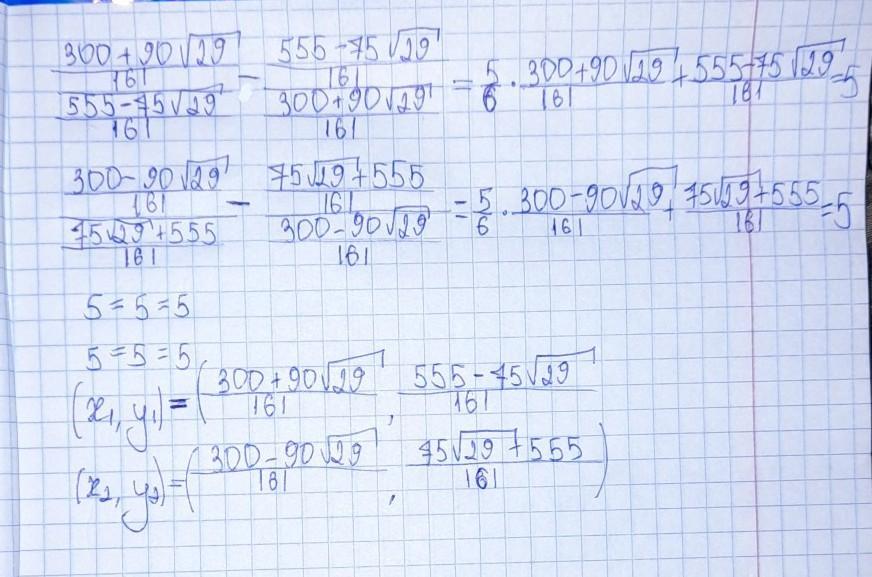 300+90√29/161 / 555-75√29/161 - 555-75√29/161 / 300+90√29/161 = 5/6 · 300+90√29/161 + 555-75√29/161 = 5
300-90√29/161 / 75√29+555/161 - 75√29+555/161 / 300-90√29/161 = 5/6 · 300-90√29/161 + 75√29+555/161 = 5
5=5=5
5=5=5
(x₁, y₁)=(300+90√29/161, 555-75√29/161
(x₂, y₂)=(300-90√29/161, 75√29+555/161)